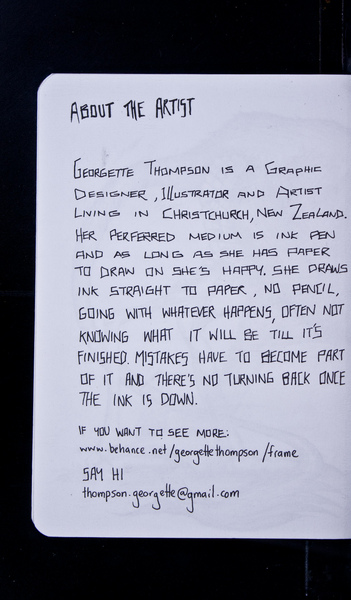 ABOUT THE ARTIST
GEORGETTE THOMPSON IS A GRAPHIC
DESIGNER, ILLUSTRATOR AND ARTIST
LIVING IN CHRISTCHURCH, NEW ZEALAND.
HER PERFERRED MEDIUM IS INK PEN
AND AS LONG AS SHE HAS PAPER
TO DRAW ON SHE'S HAPPY. SHE DRAWS
INK STRAIGHT TO PAPER, NO PENCIL,
GOING WITH WHATEVER HAPPENS, OFTEN NOT
KNOWING WHAT IT WILL BE TILL IT'S
FINISHED. MISTAKES HAVE TO BECOME PART
OF IT AND THERE'S NO TURNING BACK ONCE
THE INK IS DOWN.
IF YOU WANT TO SEE MORE:
www.behance.net/georgettethompson/frame
SAY HI
thompson.georgette@gmail.com